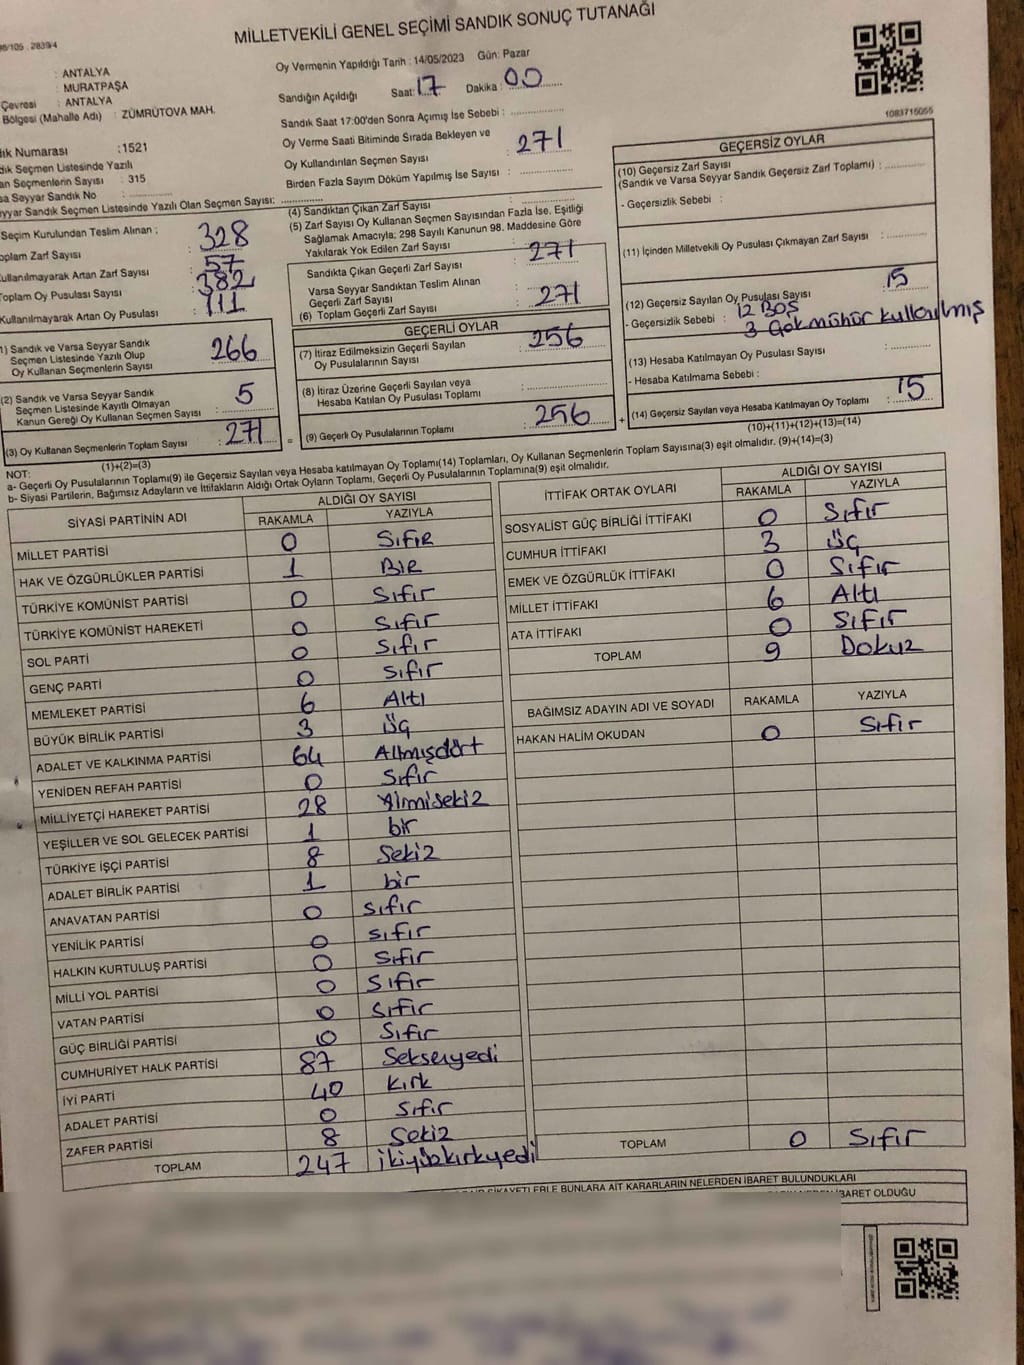 98/105 . 2839/4
MİLLETVEKİLİ GENEL SEÇİMİ SANDIK SONUÇ TUTANAĞI
: ANTALYA
: MURATPAŞA
Çevresi : ANTALYA
Bölgesi (Mahalle Adı) : ZÜMRÜTOVA MAH.
Numarası :1521
Seçmen Listesinde Yazılı
Seçmenlerin Sayısı : 315
Seyyar Sandık No :
Seyyar Sandık Seçmen Listesinde Yazılı Olan Seçmen Sayısı:
Oy Vermenin Yapıldığı Tarih : 14/05/2023 Gün: Pazar
Sandığın Açıldığı Saat: 17 Dakika : 00
Sandık Saat 17:00'den Sonra Açımış İse Sebebi :
Oy Verme Saati Bitiminde Sırada Bekleyen ve
Oy Kullandırılan Seçmen Sayısı : 271
Birden Fazla Sayım Döküm Yapılmış İse Sayısı :
1083715055
Seçim Kurulundan Teslim Alınan ;
Toplam Zarf Sayısı : 328
Kullanılmayarak Artan Zarf Sayısı : 57
Toplam Oy Pusulası Sayısı : 382
Kullanılmayarak Artan Oy Pusulası : 111
(1) Sandık ve Varsa Seyyar Sandık
Seçmen Listesinde Yazılı Olup
Oy Kullanan Seçmenlerin Sayısı : 266
(2) Sandık ve Varsa Seyyar Sandık
Seçmen Listesinde Kayıtlı Olmayan
Kanun Gereği Oy Kullanan Seçmen Sayısı : 5
(3) Oy Kullanan Seçmenlerin Toplam Sayısı : 271
(1)+(2)=(3)
(4) Sandıktan Çıkan Zarf Sayısı :
(5) Zarf Sayısı Oy Kullanan Seçmen Sayısından Fazla İse, Eşitliği
Sağlamak Amacıyla; 298 Sayılı Kanunun 98. Maddesine Göre
Yakılarak Yok Edilen Zarf Sayısı :
Sandıkta Çıkan Geçerli Zarf Sayısı : 271
Varsa Seyyar Sandıktan Teslim Alınan
Geçerli Zarf Sayısı :
(6) Toplam Geçerli Zarf Sayısı : 271
GEÇERLİ OYLAR
(7) İtiraz Edilmeksizin Geçerli Sayılan
Oy Pusulalarının Sayısı : 256
(8) İtiraz Üzerine Geçerli Sayılan veya
Hesaba Katılan Oy Pusulası Toplamı :
= (9) Geçerli Oy Pusulalarının Toplamı : 256 +
GEÇERSİZ OYLAR
(10) Geçersiz Zarf Sayısı
(Sandık ve Varsa Seyyar Sandık Geçersiz Zarf Toplamı) :
- Geçersizlik Sebebi :
(11) İçinden Milletvekili Oy Pusulası Çıkmayan Zarf Sayısı :
(12) Geçersiz Sayılan Oy Pusulası Sayısı : 15
- Geçersizlik Sebebi : 12 BOŞ
3 Gök mühür kullanılmış
(13) Hesaba Katılmayan Oy Pusulası Sayısı :
- Hesaba Katılmama Sebebi :
(14) Geçersiz Sayılan veya Hesaba Katılmayan Oy Toplamı : 15
(10)+(11)+(12)+(13)=(14)
NOT:
a- Geçerli Oy Pusulalarının Toplamı(9) ile Geçersiz Sayılan veya Hesaba katılmayan Oy Toplamı(14) Toplamları, Oy Kullanan Seçmenlerin Toplam Sayısına(3) eşit olmalıdır. (9)+(14)=(3)
b- Siyasi Partilerin, Bağımsız Adayların ve İttifakların Aldığı Ortak Oyların Toplamı, Geçerli Oy Pusulalarının Toplamına(9) eşit olmalıdır.
SİYASİ PARTİNİN ADI ALDIĞI OY SAYISI
RAKAMLA YAZIYLA
MİLLET PARTİSİ 0 SIFIR
HAK VE ÖZGÜRLÜKLER PARTİSİ 1 BİR
TÜRKİYE KOMÜNİST PARTİSİ 0 Sıfır
TÜRKİYE KOMÜNİST HAREKETİ 0 Sıfır
SOL PARTİ 0 Sıfır
GENÇ PARTİ 0 Sıfır
MEMLEKET PARTİSİ 6 Altı
BÜYÜK BİRLİK PARTİSİ 3 üç
ADALET VE KALKINMA PARTİSİ 64 Altmışdört
YENİDEN REFAH PARTİSİ 0 Sıfır
MİLLİYETÇİ HAREKET PARTİSİ 28 Yirmisekiz
YEŞİLLER VE SOL GELECEK PARTİSİ 1 bir
TÜRKİYE İŞÇİ PARTİSİ 8 Sekiz
ADALET BİRLİK PARTİSİ 1 bir
ANAVATAN PARTİSİ 0 Sıfır
YENİLİK PARTİSİ 0 Sıfır
HALKIN KURTULUŞ PARTİSİ 0 Sıfır
MİLLİ YOL PARTİSİ 0 Sıfır
VATAN PARTİSİ 0 Sıfır
GÜÇ BİRLİĞİ PARTİSİ 0 Sıfır
CUMHURİYET HALK PARTİSİ 87 Seksenyedi
İYİ PARTİ 40 Kırk
ADALET PARTİSİ 0 Sıfır
ZAFER PARTİSİ 8 Sekiz
TOPLAM 247 ikiyüzkırkyedi
İTTİFAK ORTAK OYLARI ALDIĞI OY SAYISI
RAKAMLA YAZIYLA
SOSYALİST GÜÇ BİRLİĞİ İTTİFAKI 0 Sıfır
CUMHUR İTTİFAKI 3 üç
EMEK VE ÖZGÜRLÜK İTTİFAKI 0 Sıfır
MİLLET İTTİFAKI 6 Altı
ATA İTTİFAKI 0 Sıfır
TOPLAM 9 Dokuz
BAĞIMSIZ ADAYIN ADI VE SOYADI RAKAMLA YAZIYLA
HAKAN HALİM OKUDAN 0 Sıfır
TOPLAM 0 Sıfır
BUNLARA AİT KARARLARIN NELERDEN İBARET BULUNDUKLARI
İBARET OLDUĞU